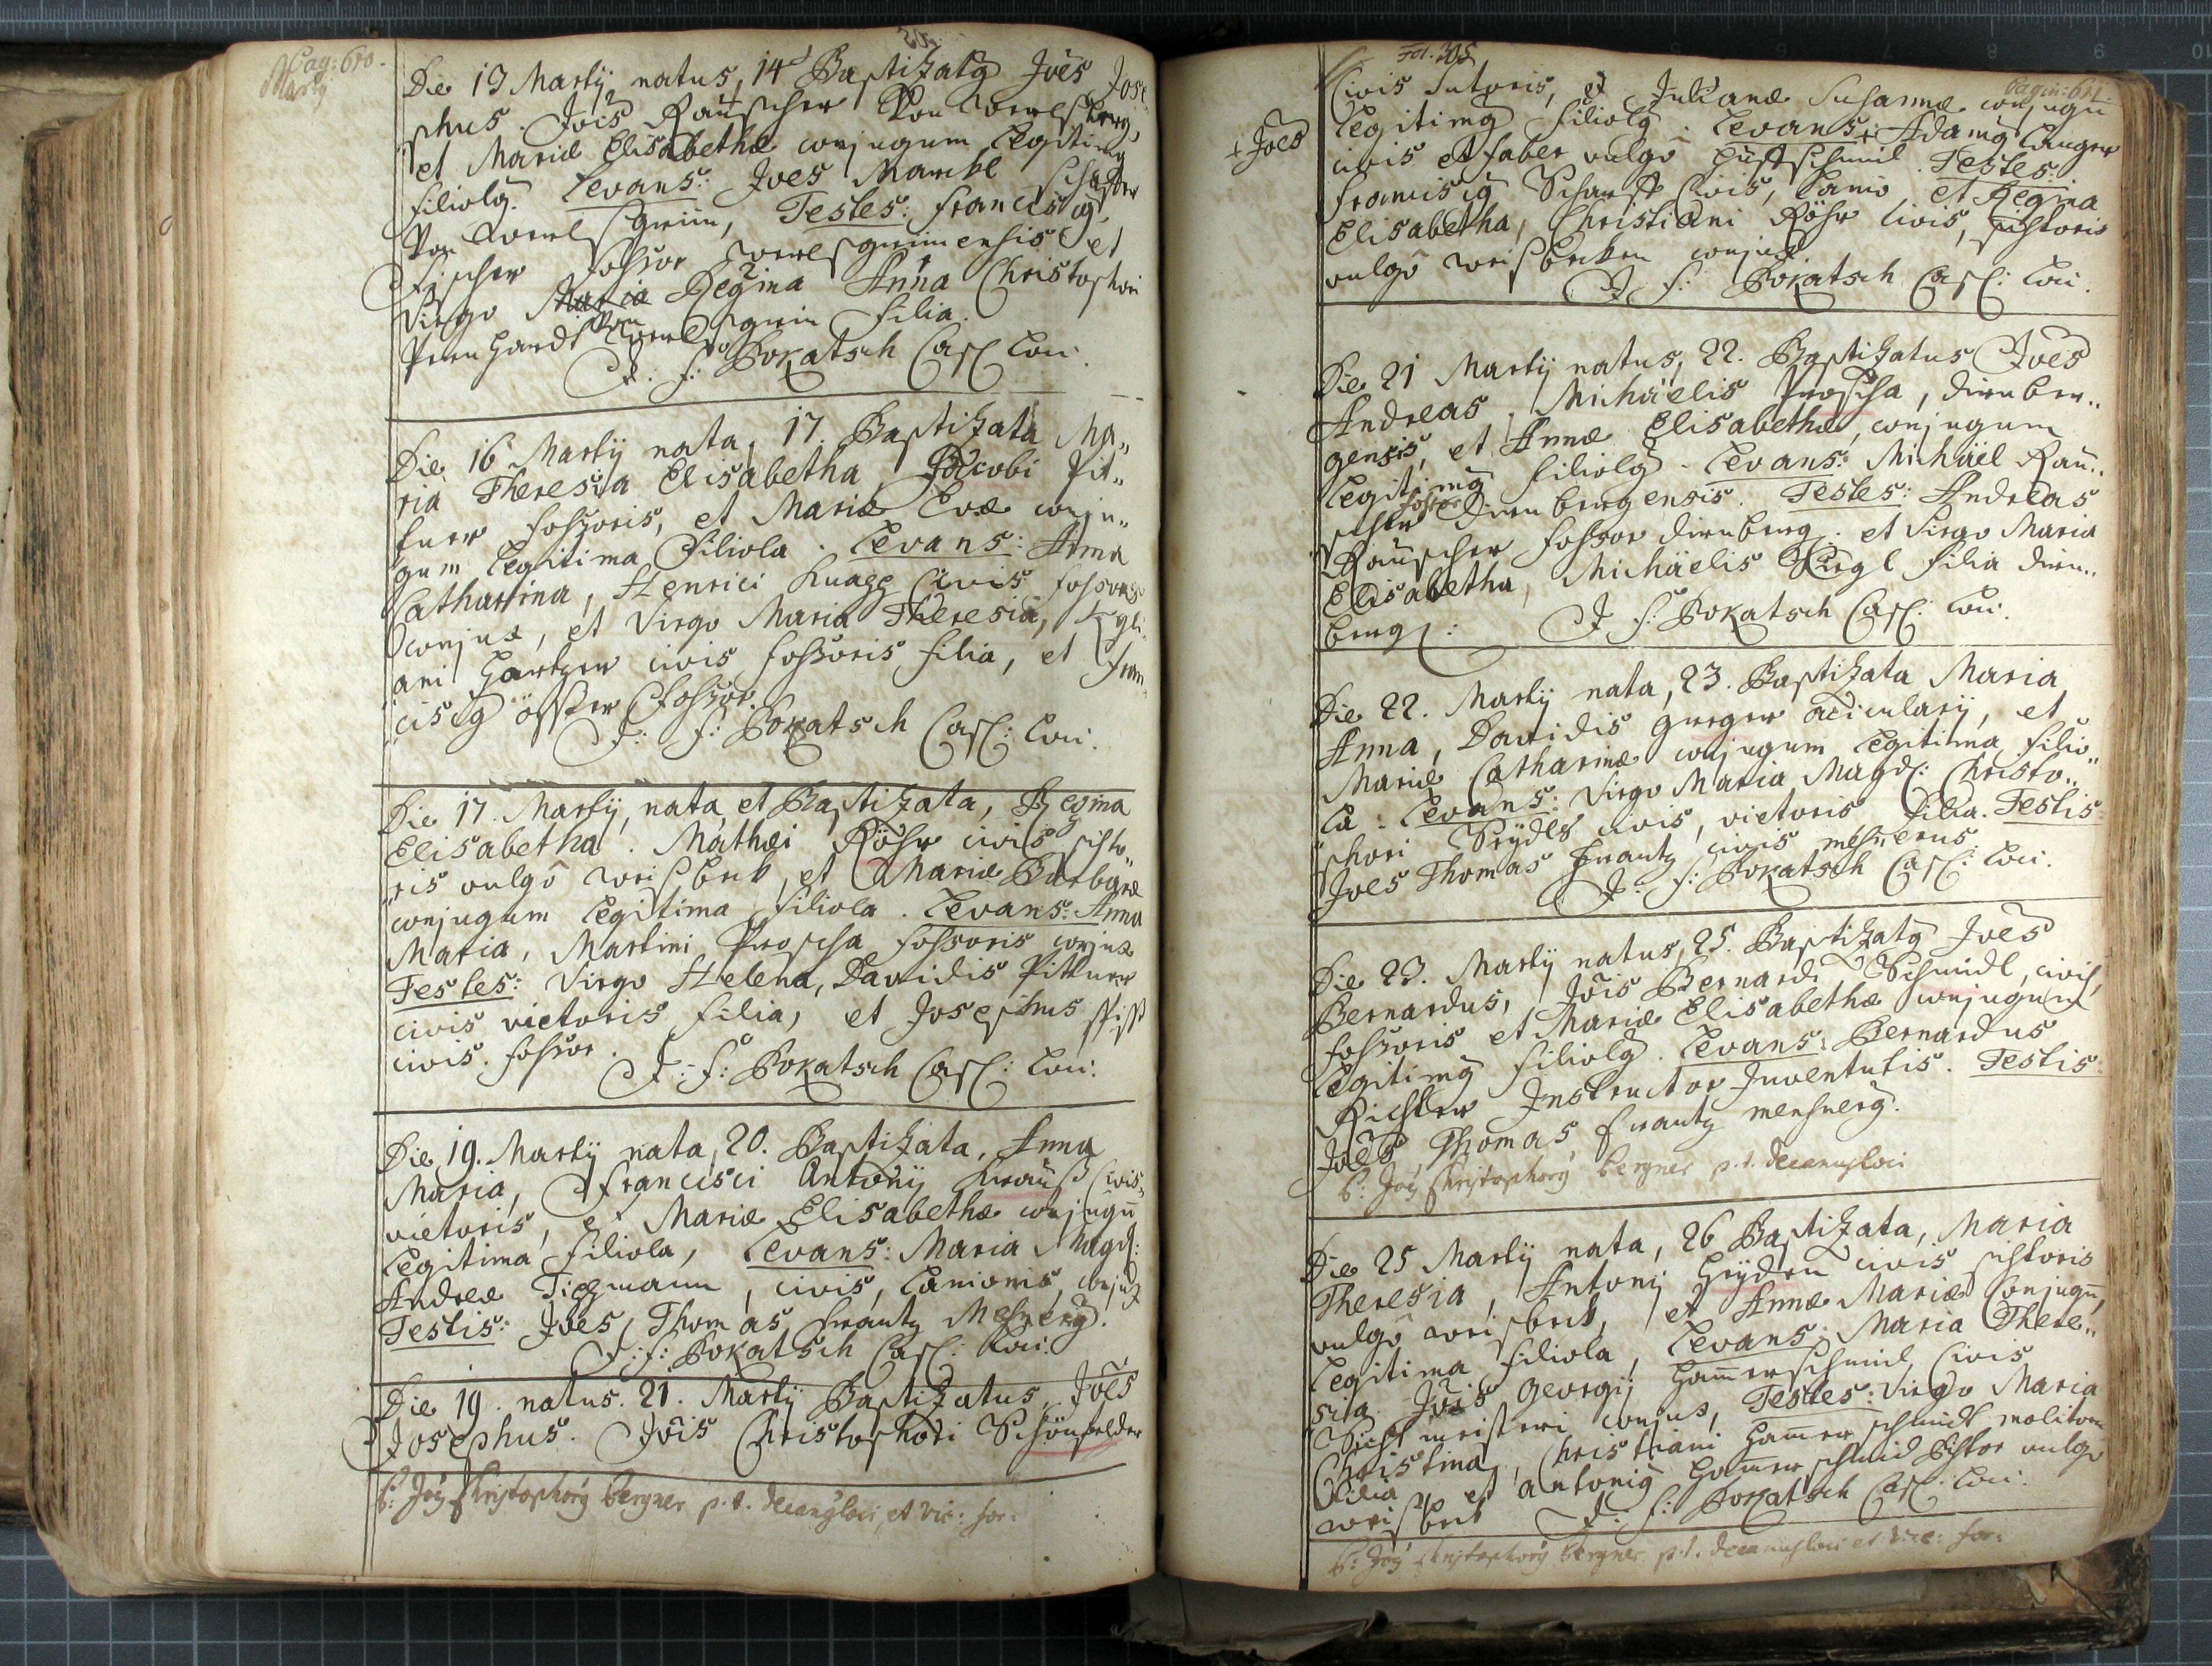 Pag: 610.
Martij
Die 13 Martij natus, 14 Baptizatg Joes Jose
phus. Jois Rauscher Von Werlsberg,
et Mariæ Elisabethæ conjugum Legitimg
filiolg. Levans: Joes Marckl Schaffer
Von Werlsgrün, Testes: Franciscg
Fischer fossor werlsgrünensis et
Virgo Regina Anna Christophori
Von
Pern Hardt Werlsgrün filia.
J: f: Bokatsch Cap: Loci.
Die 16 Martij nata, 17. Baptizata Ma„
ria Theresia Elisabetha, Jacobi Pit„
tner fossoris, et Mariæ Evæ conju„
gum Legitima filiola. Levans: Anna
Catharina, Henrici Knapp Civis fossoris
Conjux, et Virgo Maria Theresia,
ani civis fossoris filia, et Fran„
ciscg fossor.
J: f: Bokatsch Cap: Loci.
Die 17. Martij, nata et Baptizata, Regina
Elisabetha. Mathæi Röhr civis pisto„
ris vulgò weisbeck, et Mariæ Barbaræ
conjugum Legitima filiola. Levans: Anna
Maria, Martini Proscha fossoris conjux
Testes: Virgo Helena, Davidis Pittner
civis vietoris filia, et Josephus
civis. fossor.
J: f: Bokatsch Cap: Loci.
Die 19. Martij nata, 20. Baptizata, Anna
Maria, Francisci Antonij Krauß Civis„
vietoris, et Mariæ Elisabethæ conjugū
Legitima filiola, Levans: Maria Magd:
Andreæ Tippmann, civis, Lanionis, conjux
Testis: Joes Thomas Frantz Mesnerg.
J: f: Bokatsch Cap: Loci.
Die 19. natus. 21. Martij Baptizatus, Joes
Josephus. Jois Christophori Schönfelder
P: Joēs Christophorg Bergner p. t. decang loci et vic: for:
Fol. 305
Pagin: 611.
Civis Sutoris, et Julianæ Susannæ conjugū
Legitimg filiolg. Levans: + Adamg Langer
+ Joes
civis et faber vulgò Huffschmid. Testes:
Franciscg Scharff Civis, Lanio et Regina
Elisabetha, Christiani Röhr civis, pistoris
vulgò weisbecken conjux
J f: Bokatsch Cap: Loci.
Die 21 Martij natus, 22. Baptizatus Joes
Andreas, Michäelis Proscha, Dirnber„
gensis, et Annæ Elisabethæ, conjugum
Legitimg filiolg. Levans: Michäel Rau„
fossor
scher Dirnbergensis. Testes: Andreas
Rauscher fossor Dirnberg: et Virgo Maria
Elisabetha, Michäelis filia Dirn„
berg:
J f: Bokatsch Cap: Loci.
Die 22. Martij nata, 23. Baptizata Maria
Anna, Davidis Gregor acicularij, et
Mariæ Catharinæ conjugum Legitima filio„
la. Levans: Virgo Maria Magd: Christo„
phori Seydl civis, vietoris filia. Testis:
Joes Thomas Frantz civis mesnerus.
J: f: Bokatsch Cap: Loci.
Die 23. Martij natus, 25. Baptizatg Joes
Bernardus, Jois Bernardi Schmidt, civis,
fossoris et Mariæ Elisabethæ conjugum
Legitimg filiolg. Levans: Bernardus
Richter Instructor Juventutis. Testis:
Joes Thomas Frantz mesnerg.
P: Joēs Christophorg Bergner p. t. decanus loci
Die 25 Martij nata, 26 Baptizata, Maria
Theresia, Antonij Heyden civis pistoris
vulgò weisbeck, et Annæ Mariæ Conjugū,
Legitima filiola, Levans: Maria There„
sia Jois Georgij Hammerschmid, Civis
conjux, Testes: Virgo Maria
Christina, Christiani Hammerschmidt molitoris
filia et antonig Hammerschmid Pistor vulgo
weisbeck
J: f: Bokatsch Cap: Loci.
P: Joēs Christophorg Bergner p. t. decanus loci et vice: for: